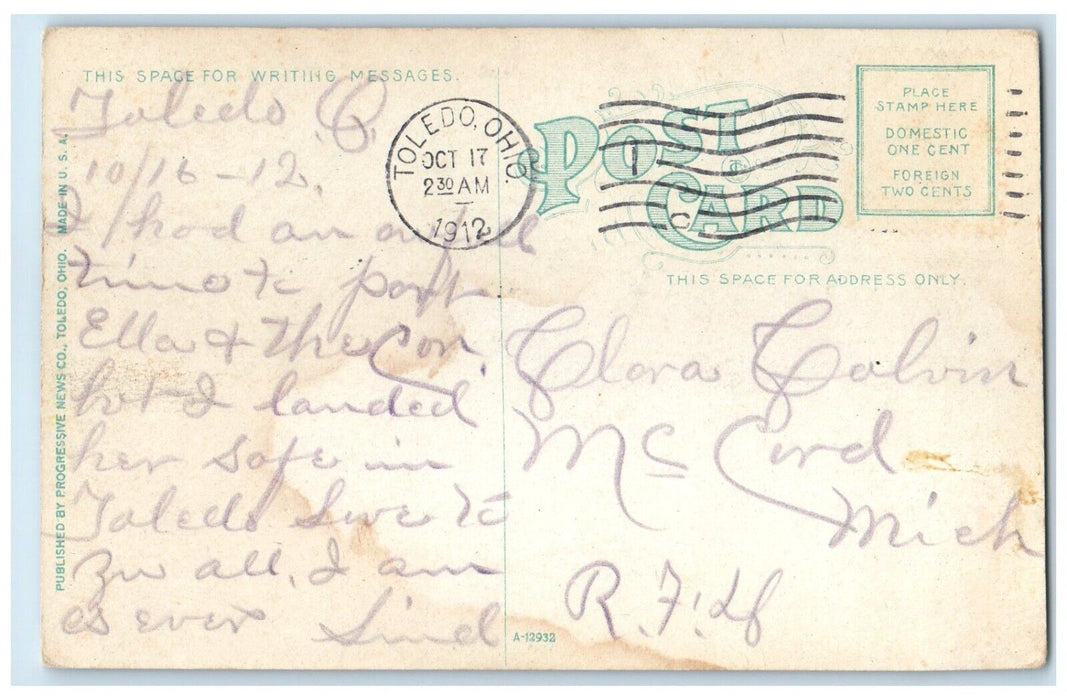 THIS SPACE FOR WRITING MESSAGES.
Toledo O.
10/16-12.
I had an
time to part
Ella & the
but I landed
her safe in
Toledo Love to
all, I am
as ever
PUBLISHED BY PROGRESSIVE NEWS CO., TOLEDO, OHIO. MADE IN U.S.A.
TOLEDO, OHIO.
OCT 17
2 30 AM
1912
POST CARD
PLACE
STAMP HERE
DOMESTIC
ONE CENT
FOREIGN
TWO CENTS
THIS SPACE FOR ADDRESS ONLY.
Clara Colvin
Mc Cord
Mich
R.F.
A-12932